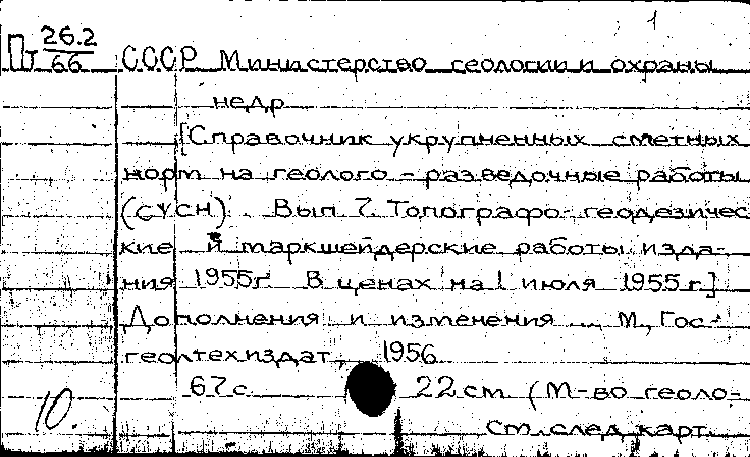 1
Пт 26.2/66 СССР Министерство геологии и охраны
недр
[Справочник укрупненных сметных
норм на геолого-разведочные работы
(СУСН). Вып 7. Топографо-геодезичес
кие и маркшейдерские работы изда-
ния 1955г. В ценах на 1 июля 1955 г.]
Дополнения и изменения ... М., Гос-
геолтехиздат, 1956
67 с. 22 см. (М-во геоло-
10. см. след карт.